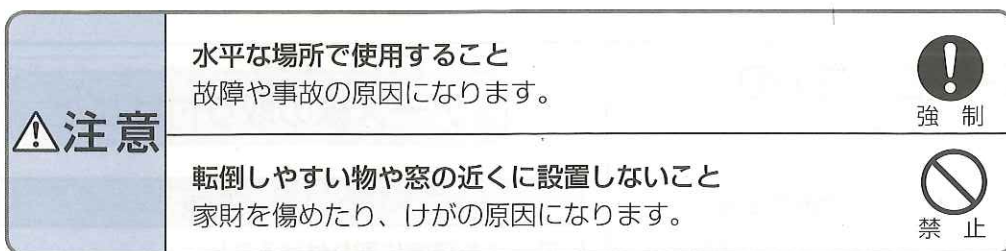 ⚠注意
水平な場所で使用すること
故障や事故の原因になります。
強 制
転倒しやすい物や窓の近くに設置しないこと
家財を傷めたり、けがの原因になります。
禁 止